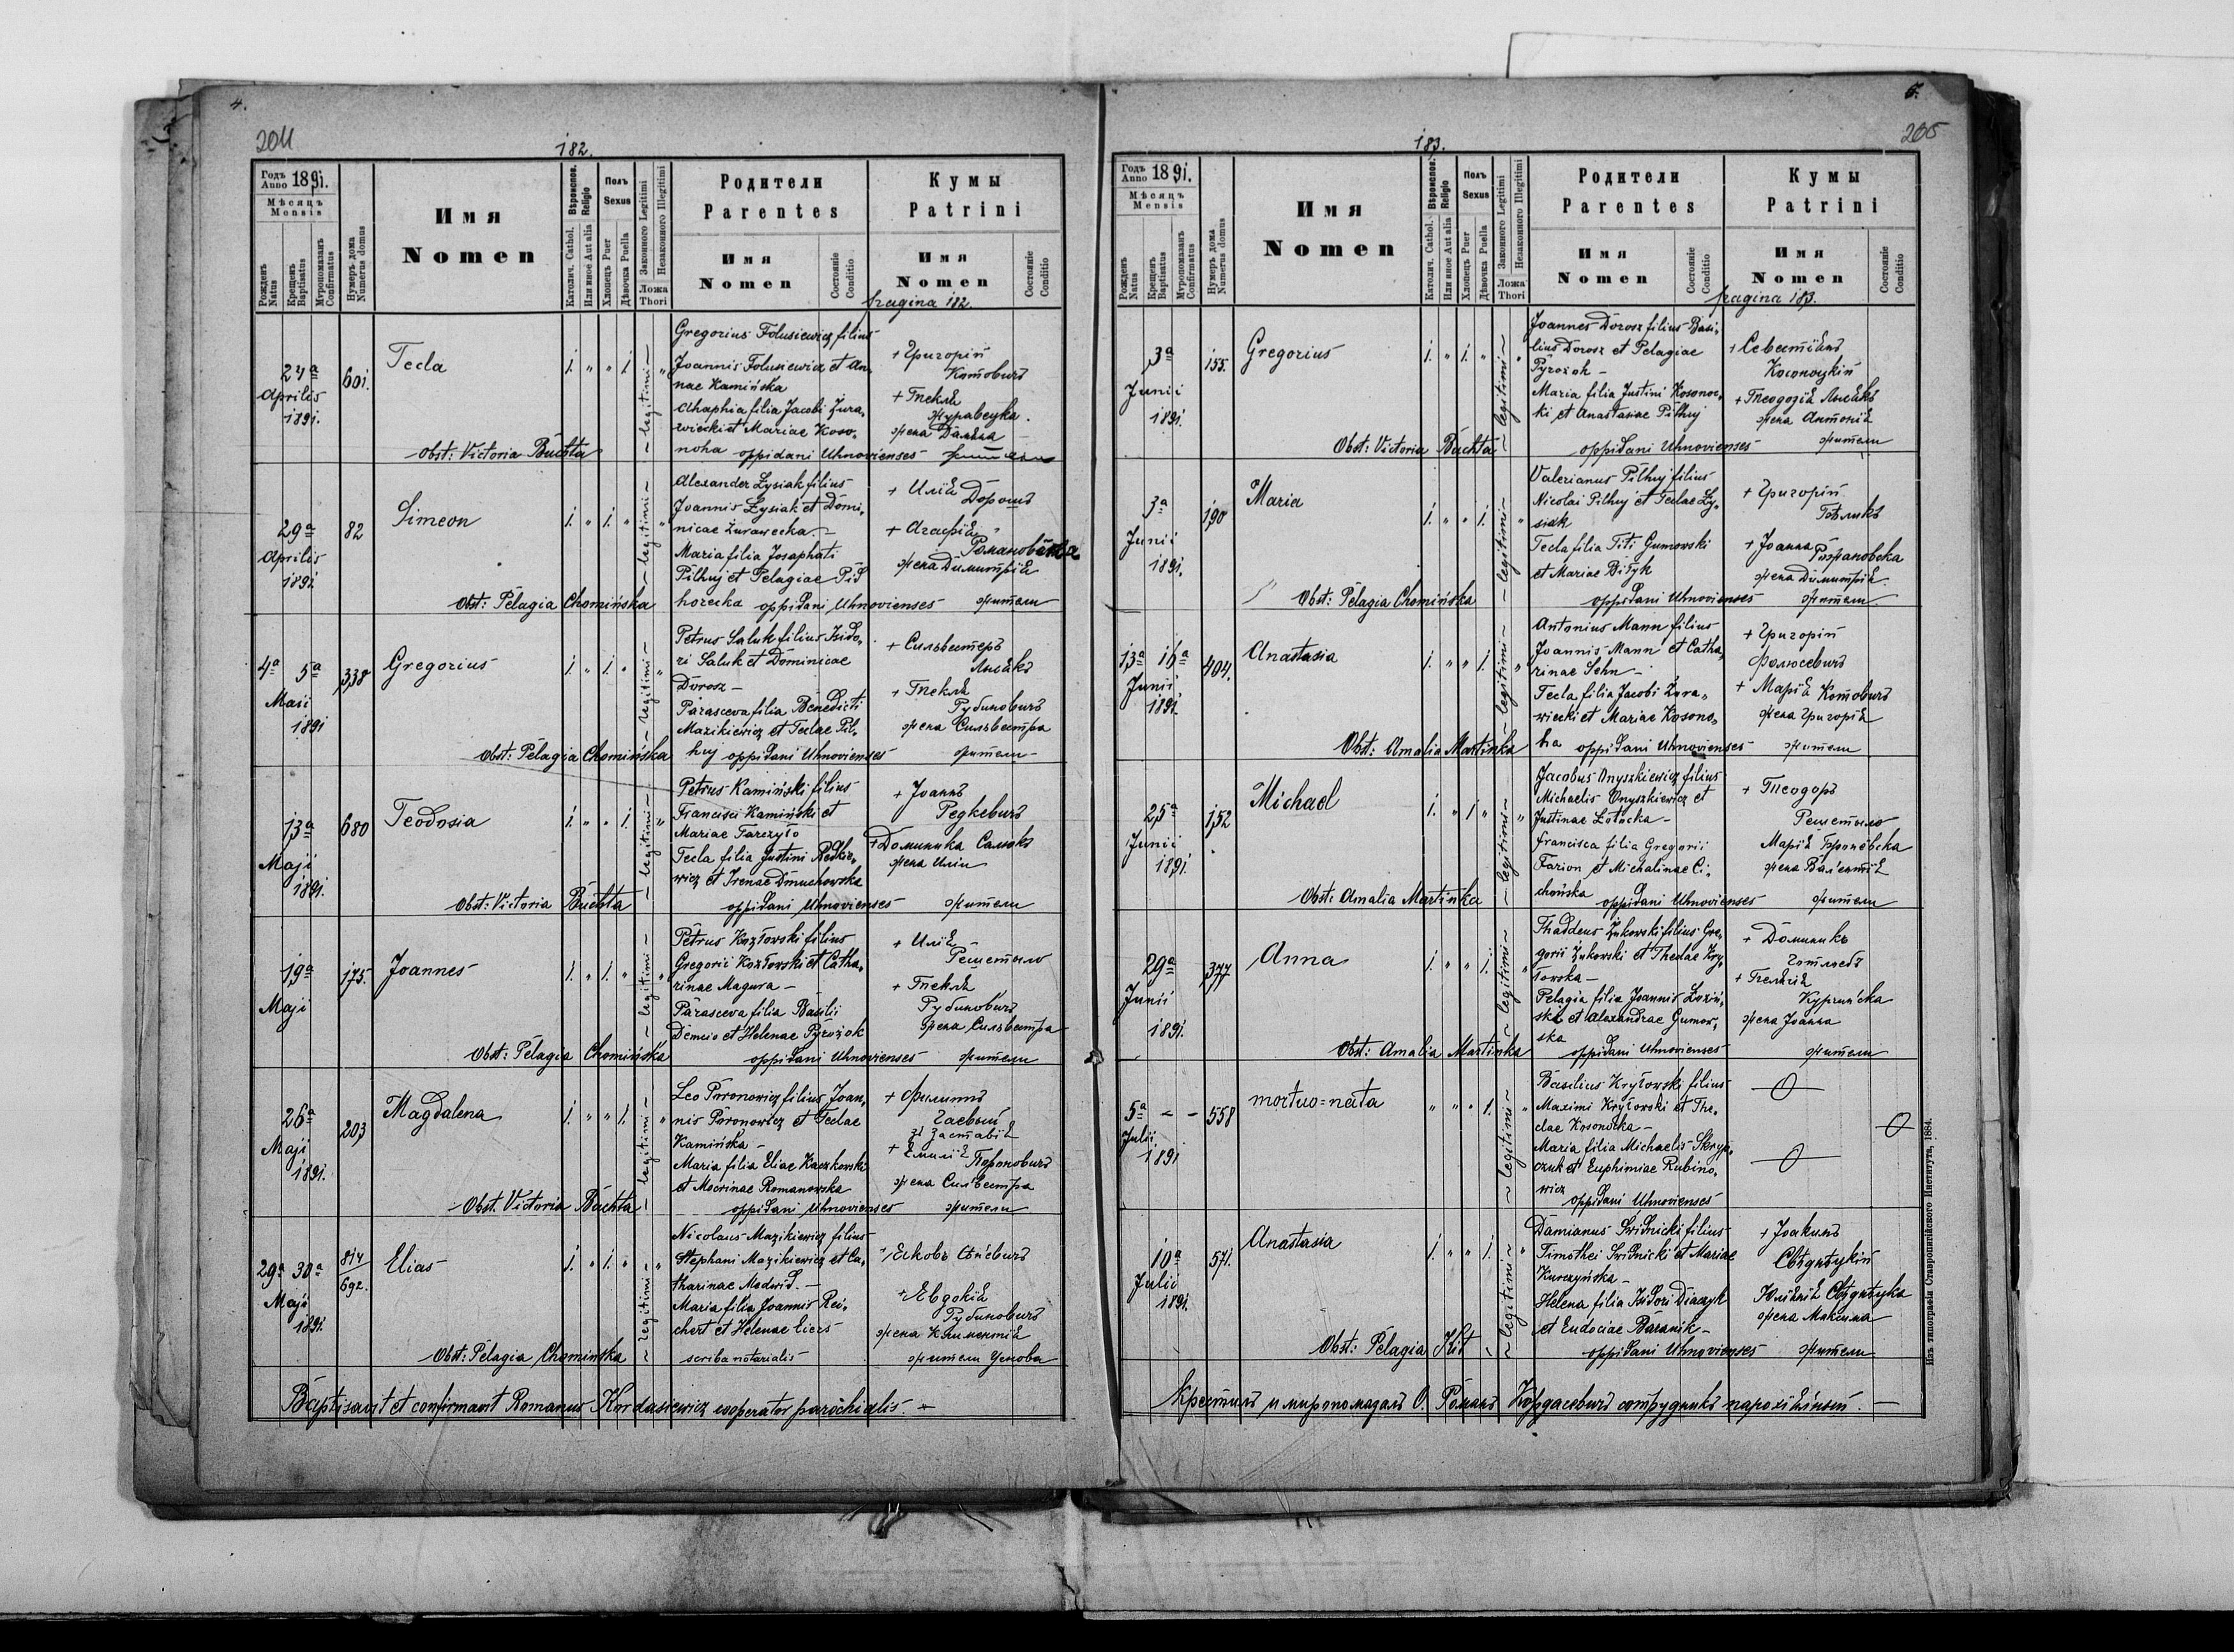 4.
204
182.
Годъ Anno 1891.
Мѣсяцъ Mensis
Рожденъ Natus
Крещенъ Baptisatus
Муропомазанъ Confirmatus
Нумеръ дома Numerus domus
Имя Nomen
Вѣроиспов. Religio
Католич. Cathol.
Или иное Aut alia
Полъ Sexus
Хлопецъ Puer
Дѣвочка Puella
Законного Legitimi
Незаконного Illegitimi
Ложа Thori
Родители Parentes
Имя Nomen
Состояніе Conditio
Кумы Patrini
Имя Nomen
Состояніе Conditio
pagina 182.
24a Aprilis 1891.
601.
Tecla
1. " " 1.
legitimi
Gregorius Folusiewicz filius
Joannis Folusiewicz et An,
nae Kamińska
Ahaphia filia Jacobi Żura,
wiecki et Mariae Koso,
noha oppidani Uhnovienses
+ Григорій
Котовичъ
+ Текля
Журавецка.
жена Даміяна
Obst: Victoria Buchta
29a Aprilis 1891.
82
Simeon
1. " 1. "
legitimi
Alexander Łysiak filius
Joannis Łysiak et Domi,
nicae Żurawecka. -
Maria filia Josaphati
Pilhuj et Pelagiae Pid
horecka oppidani Uhnovienses
+ Илія
Дорошъ
+ Агафія
Романовска
жена Димитрія
жители
Obst: Pelagia Chomińska
4a 5a Maii 1891
338
Gregorius
1. " 1. "
legitimi
Petrus Saluk filius Isido,
ri Saluk et Dominicae
Dorosz -
Parasceva filia Benedicti
Mazikiewicz et Teclae Pil,
huj oppidani Uhnovienses
+ Сильвестеръ
Лисякъ
+ Текля
Рубиновичъ
жена Сильвестра
жители -
Obst: Pelagia Chomińska
13a Maji 1891.
680
Teodosia
1. " " 1.
legitimi
Petrus Kamiński filius
Francisci Kamiński et
Mariae Tarczyło
Tecla filia Justini Redkie,
wicz et Irenae Dmuchowska
oppidani Uhnovienses
+ Іоаннъ
Редкевичъ
+ Доминика Салюкъ
жена Иліи
жители
Obst: Victoria Buchta
19a Maji
175.
Joannes
1. " 1. "
legitimi
Petrus Kozłowski filius
Gregorii Kozłowski et Catha,
rinae Magura -
Parasceva filia Basilii
Demcio et Helenae Pyrożok
oppidani Uhnovienses
+ Илія
Решетыло
+ Текля
Рубиновичъ
жена Сильвестра
жители
Obst: Pelagia Chomińska
26a Maji 1891.
203
Magdalena
1. " " 1.
legitimi
Leo Poronowicz filius Joan,
nis Poronowicz et Teclae
Kamińska -
Maria filia Eliae Kaczkowski
et Mocrinae Romanowska
oppidani Uhnovienses
+ Филиппъ
Гаевый
зъ Заставія
+ Емилія Пороновичъ
жена Сильвестра
жители
Obst. Victoria Buchta
29a 30a Maji 1891.
814/692.
Elias
1. " 1. "
legitimi
Nicolaus Mazikiewicz filius
Stephani Mazikiewicz et Ca,
tharinae Medwid. -
Maria filia Joannis Rei,
chert et Helenae Eiers
scriba notarialis
+ Евдокія
Рубиновичъ
жена Климентія
жители Угнова
Obst: Pelagia Chomińska
Baptisavit et confirmavit Romanus Kordasiewicz cooperator parochialis. -
5.
205
183.
Годъ Anno 1891.
Мѣсяцъ Mensis
Рожденъ Natus
Крещенъ Baptisatus
Муропомазанъ Confirmatus
Нумеръ дома Numerus domus
Имя Nomen
Вѣроиспов. Religio
Католич. Cathol.
Или иное Aut alia
Полъ Sexus
Хлопецъ Puer
Дѣвочка Puella
Законного Legitimi
Незаконного Illegitimi
Ложа Thori
Родители Parentes
Имя Nomen
Состояніе Conditio
Кумы Patrini
Имя Nomen
Состояніе Conditio
pagina 183.
3a Junii 1891.
155.
Gregorius
1. " 1. "
legitimi
Joannes Dorosz filius Basi,
lius Dorosz et Pelagiae
Pyrożok -
Maria filia Justini Kosonoc,
ki et Anastasiae Pilhuj
oppidani Uhnovienses
+ Севастіянъ
Косоноцкій
+ Теодозія Лисякъ
жена Антонія
жители
Obst: Victoria Buchta
3a Junii 1891.
190
Maria
1. " " 1.
legitimi
Valerianus Pilhuj filius
Nicolai Pilhuj et Teclae Ły,
siak
Tecla filia Titi Gumowski
et Mariae Biłyk
oppidani Uhnovienses
+ Григорій
+ Іоанна Романовска
жена Димитрія.
жители
Obst: Pelagia Chomińska
13a 16a Junii 1891.
404.
Anastasia
1. " " 1.
legitimi
Antonius Mann filius
Joannis Mann et Catha,
rinae Sehn -
Tecla filia Jacobi Żura,
wiecki et Mariae Kosono,
ha oppidani Uhnovienses
+ Григорій
Фолюсевичъ
+ Марія Котовичъ
жена Григорія
жители
Obst: Amalia Martinka
25a Junii 1891.
152
Michael
1. " 1 "
legitimi
Jacobus Onyszkiewicz filius
Michaelis Onyszkiewicz et
Justinae Łotocka -
Francisca filia Gregorii
Farion et Michalinae Ci,
chońska oppidani Uhnovienses
+ Теодоръ
Решетыло
жители
Obst: Amalia Martinka
29a Junii 1891.
377
Anna
1. " " 1.
legitimi
Thaddeus Żukowski filius Gre,
gorii Żukowski et Theclae Kry,
łowska -
Pelagia filia Joannis Łoziń,
ski et Alexandrae Gumow,
ska
oppidani Uhnovienses
+ Доминикъ
+ Пелагія
жена Іоанна
жители
Obst: Amalia Martinka
5a - - Julii 1891
558
mortuo=nata
" " " 1.
legitimi
Basilius Kryłowski filius
Maximi Kryłowski et The,
clae Kosonocka -
Maria filia Michaelis Skryp,
czuk et Euphimiae Rubino,
wicz
oppidani Uhnovienses
10a Julii 1891.
571.
Anastasia
1. " " 1.
legitimi
Damianus Świdnicki filius
Timothei Świdnicki et Mariae
Kurczyńska -
Helena filia Isidori Diaczyk
et Eudociae Baranik -
oppidani Uhnovienses
+ Іоакимъ
Свѣдницкій
Юліянія Свѣдницка
жена Максима
жители
Obst: Pelagia Kit
Крестилъ и миропомазалъ О. Романъ Кордасевичъ сотрудникъ парохіяльный. -
Изъ типографіи Ставропигійского Института, 1884.